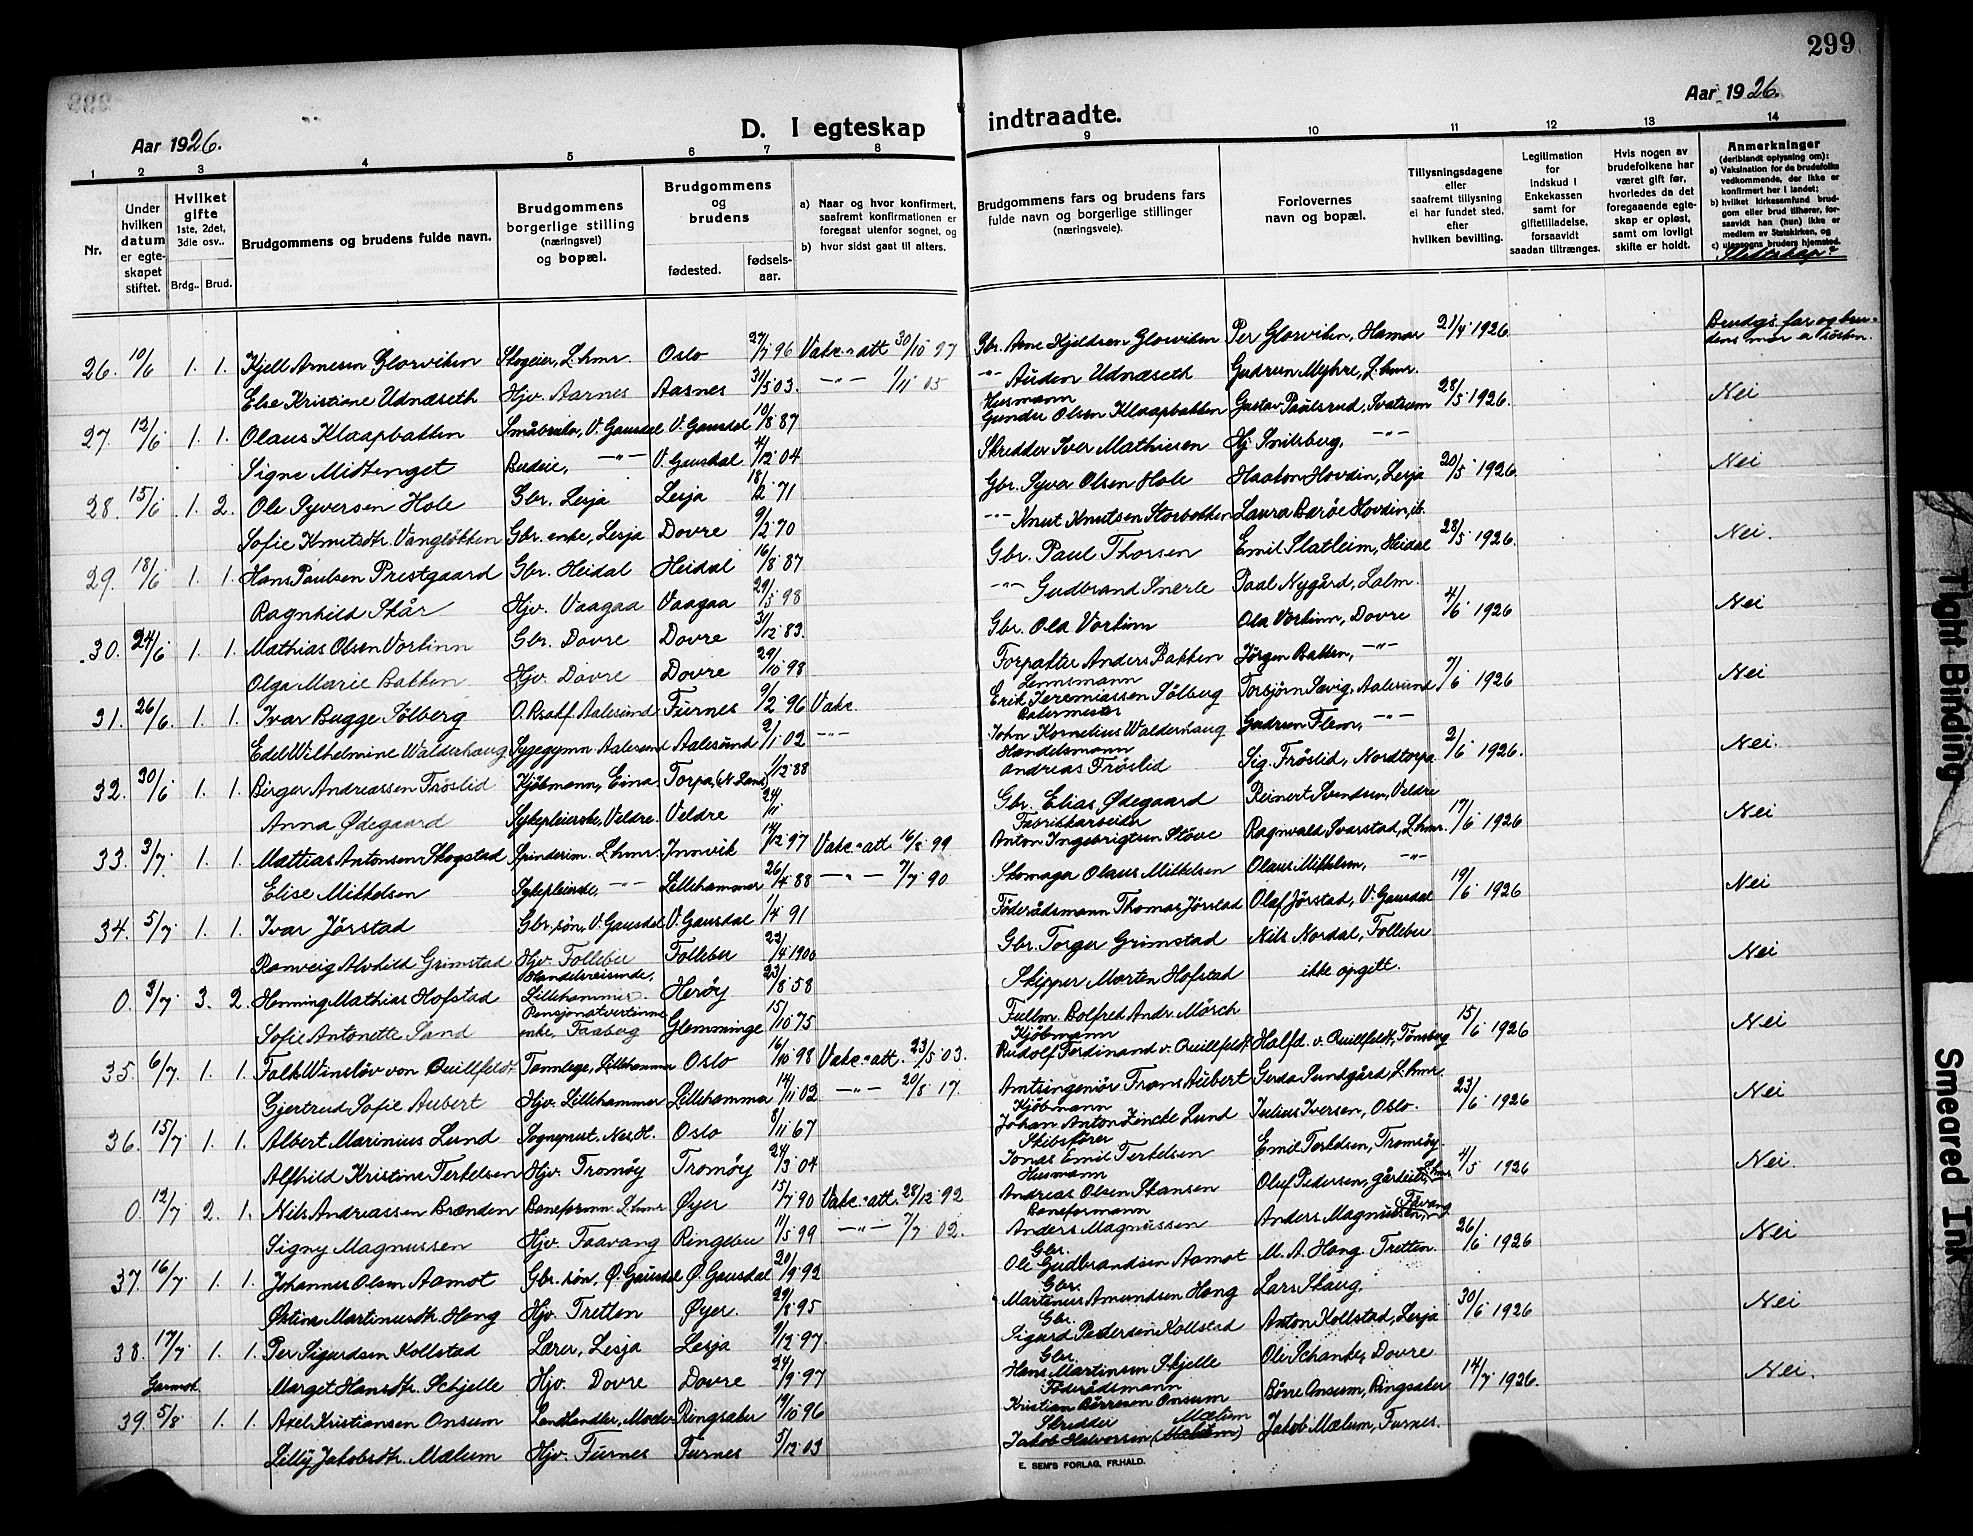 299
Aar 1926.
D. I egteskap indtraadte.
Aar 1926.
1 2 3 4 5 6 7 8 9 10 11 12 13 14
Nr.
Under hvilken datum er egteskapet stiftet.
Hvilket gifte 1ste, 2det, 3die osv..
Brdg.. Brud.
Brudgommens og brudens fulde navn.
Brudgommens borgerlige stilling (næringsvei) og bopæl.
Brudgommens og brudens
fødested. fødselsaar.
a) Naar og hvor konfirmert, saafremt konfirmationen er foregaat utenfor sognet, og
b) hvor sidst gaat til alters.
Brudgommens fars og brudens fars fulde navn og borgerlige stillinger (næringsveie).
Forlovernes navn og bopæl.
Tillysningsdagene eller saafremt tillysning ei har fundet sted, efter hvilken bevilling.
Legitimation for indskud i Enkekassen samt for giftetilladelse, forsaavidt saadan tiltrænges.
Hvis nogen av brudefolkene har været gift før, hvorledes da det foregaaende egteskap er opløst, samt om lovligt skifte er holdt.
Anmerkninger
(deriblandt oplysning om):
a) Vaksination for de brudefolks vedkommende, der ikke er konfirmert her i landet;
b) hvilket kirkesamfund brudgom eller brud tilhører, forsaavidt han (hun) ikke er medlem av Statskirken, og
c) utensogns bruders hjemsted.
Slegtskap?
26. 10/6 1. 1. Kjell Arnesen Glorviken Skogeier, L.hmr. Oslo 27/7 96 Vakc. att 30/10 97 Gbr. Arne Kjeldsen Glorviken Per Glorviken, Hamar 21/4 1926. Brudgs far og brudens mor er søsken.
Else Kristiane Udnæseth Hjv. Aarnes Aasnes 31/5 03. —"— 1/11 05 —"— Auden Udnæseth Gudrun Myhre, L.hmr.
27. 12/6 1. 1. Olaus Klaapbakken Småbruker, V. Gausdal V. Gausdal 10/8 87 Husmann Gundre Olsen Klaapbakken Gustav Paulsrud, Svatsum 28/5 1926. Nei
Signe Midtenget Budeie, —"— V. Gausdal 4/12 04 Skredder Iver Mathiesen Hj. Snilsberg, —"—
28. 15/6 1. 2. Ole Syversen Hole Gbr. Lesja Lesja 18/2 71 Gbr. Syver Olsen Hole Haakon Hovdin, Lesja 20/5 1926. Nei
Sofie Knutsdtr. Vangløkken Gbr. enke, Lesja Dovre 9/2 70 —"— Knut Knutsen Storbakken Laura Barøe Hovdin, ib.
29. 18/6 1. 1. Hans Paulsen Prestgaard Gbr. Heidal Heidal 16/8 87 Gbr. Paul Thorsen Emil Slatleim, Heidal 28/5 1926. Nei.
Ragnhild Skår Hjv. Vaagaa Vaagaa 29/5 98 —"— Gudbrand Snerle Paal Nygård, Lalm.
30. 24/6 1. 1. Mathias Olsen Vorkinn Gbr. Dovre Dovre 31/12 83. Gbr. Ola Vorkinn Ola Vorkinn, Dovre 4/6 1926 Nei
Olga Marie Bakken Hjv. Dovre Dovre 29/10 98 Forpakter Anders Bakken Jørgen Bakken, —"—
31. 26/6. 1. 1. Ivar Bugge Sølberg O.Rsakf. Aalesund Furnes 9/2 96 Vakc. Lensmann Erik Jeremiassen Sølberg Torbjørn Sævig, Aalesund 7/6 1926 Nei
Edel Wilhelmine Walderhaug Sygegymn. Aalesund Aalesund 2/1 02 —"— John Kornelius Walderhaug Gudrun Flem, —"—
32. 30/6 1. 1. Birger Andreassen Frøslid Kjøbmann, Eina Torpa, (N. Land) 1/12 88 Handelsmann Andreas Frøslid Sig. Frøslid, Nordtorpa 2/6 1926. Nei.
Anna Ødegaard Sykepleierske, Veldre. Veldre 24/11 Gbr. Elias Ødegaard Reinert Svendsen, Veldre
33. 3/7. 1. 1. Mathias Antonsen Skogstad Spinderim. L.hmr. Innvik 14/12 97 Vakc. att. 16/8 99 Fabrikkarbeider Anton Ingebrigtsen Støve Ragnvald Svarstad, L.hmr. 17/6 1926 Nei
Elise Mikkelsen Sykepleierske, —"— Lillehammer 26/4 88 —"— 7/7 90 Skomaga Olaus Mikkelsen Olaus Mikkelsen, —"—
34. 5/7 1. 1. Ivar Jørstad Gbr. søn, V. Gausdal V. Gausdal 1/4 91 Føderådsmann Thomas Jørstad Olaf Jørstad, V. Gausdal 19/6 1926 Nei
Ranveig Alvhild Grimstad Hjv. Follebu Follebu 22/4 1900 Gbr. Torger Grimstad Nils Nordal, Follebu
0. 3/7. 3. 2. Henning Mathias Hofstad Handelsreisende, Lillehammer. Herøy 23/8 58 Skipper Morten Hofstad ikke opgitt. Nei
Sofie Antonette Sand Pensjonatvertinne enke, Faaberg Glemminge 15/10 75 Fullm. Bolfred Andr. Mørch
35. 6/7. 1. 1. Falk Winsløv von Quillfeldt Tannlege, Lillehammer Oslo 16/10 98 Vakc. att. 23/5 03. Kjøbmann Rudolf Ferdinand v. Quillfeldt Halfd. v. Quillfeldt, Tønsberg 15/6 1926 Nei
Gjertrud Sofie Aubert Hjv. Lillehammer Lillehammer 14/11 02 —"— 20/8 17. Amtsingeniør Frans Aubert Gerda Sundgård, L.hmr.
36. 15/7 1. 1. Albert Marinius Lund Sogneprest, Nes H. Oslo 8/11 67 Kjøbmann Johan Anton Zincke Lund Julius Iversen, Oslo. 23/6 1926 Nei
Alfhild Kristine Terkelsen Hjv. Tromøy Tromøy 24/3 04 Skibsfører Jonas Emil Terkelsen Emil Terkelsen, Tromøy.
0. 12/7 2. 1. Nils Andreassen Brænden Baneformn. L.hmr. Øyer 15/7 90 Vakc. att. 28/12 92 Husmann Andreas Olsen Skansen Oluf Pedersen, L.hmr. 4/5 1926 Nei.
Signy Magnussen Hjv. Faavang Ringebu 11/5 99 —"— 7/7 02. Baneformann Anders Magnussen Anders Magnussen, Fåvang
37. 16/7 1. 1. Johannes Olsen Aamot Gbr. søn, Ø. Gausdal Ø. Gausdal 20/9 92 Gbr. Ole Gudbrandsen Aamot M. A. Hong Tretten. 26/6 1926 Nei
Østine Martinusdtr. Hong Hjv. Tretten Øyer. 29/8 95 Gbr. Martinus Amundsen Hong Lars Skaug,
38. 17/7 1. 1. Per Sigurdsen Kollstad Lærer, Lesja Lesja 9/12 97. Gbr. Sigurd Pedersen Kollstad Anton Kollstad, Lesja 30/6 1926 Nei
Marget Hansdtr. Schjelle Hjv. Dovre Dovre 24/9 97 Gbr. Hans Martinsen Skjelle Ole Schanke, Dovre
Garmok.
39. 5/8 1. 1. Axel Kristiansen Onsum Landhandler, Moelv Ringsaker 19/10 96 Føderådsmann Kristian Børresen Onsum Børre Onsum, Ringsaker 14/7 1926. Nei.
Lilly Jakobsdtr. Mælum Hjv. Furnes Furnes 5/12 03 Skredder Jakob Halvorsen Mælum Jakob Mælum, Furnes.
E. SEM'S FORLAG, FR.HALD.
Tight Binding
Smeared Ink